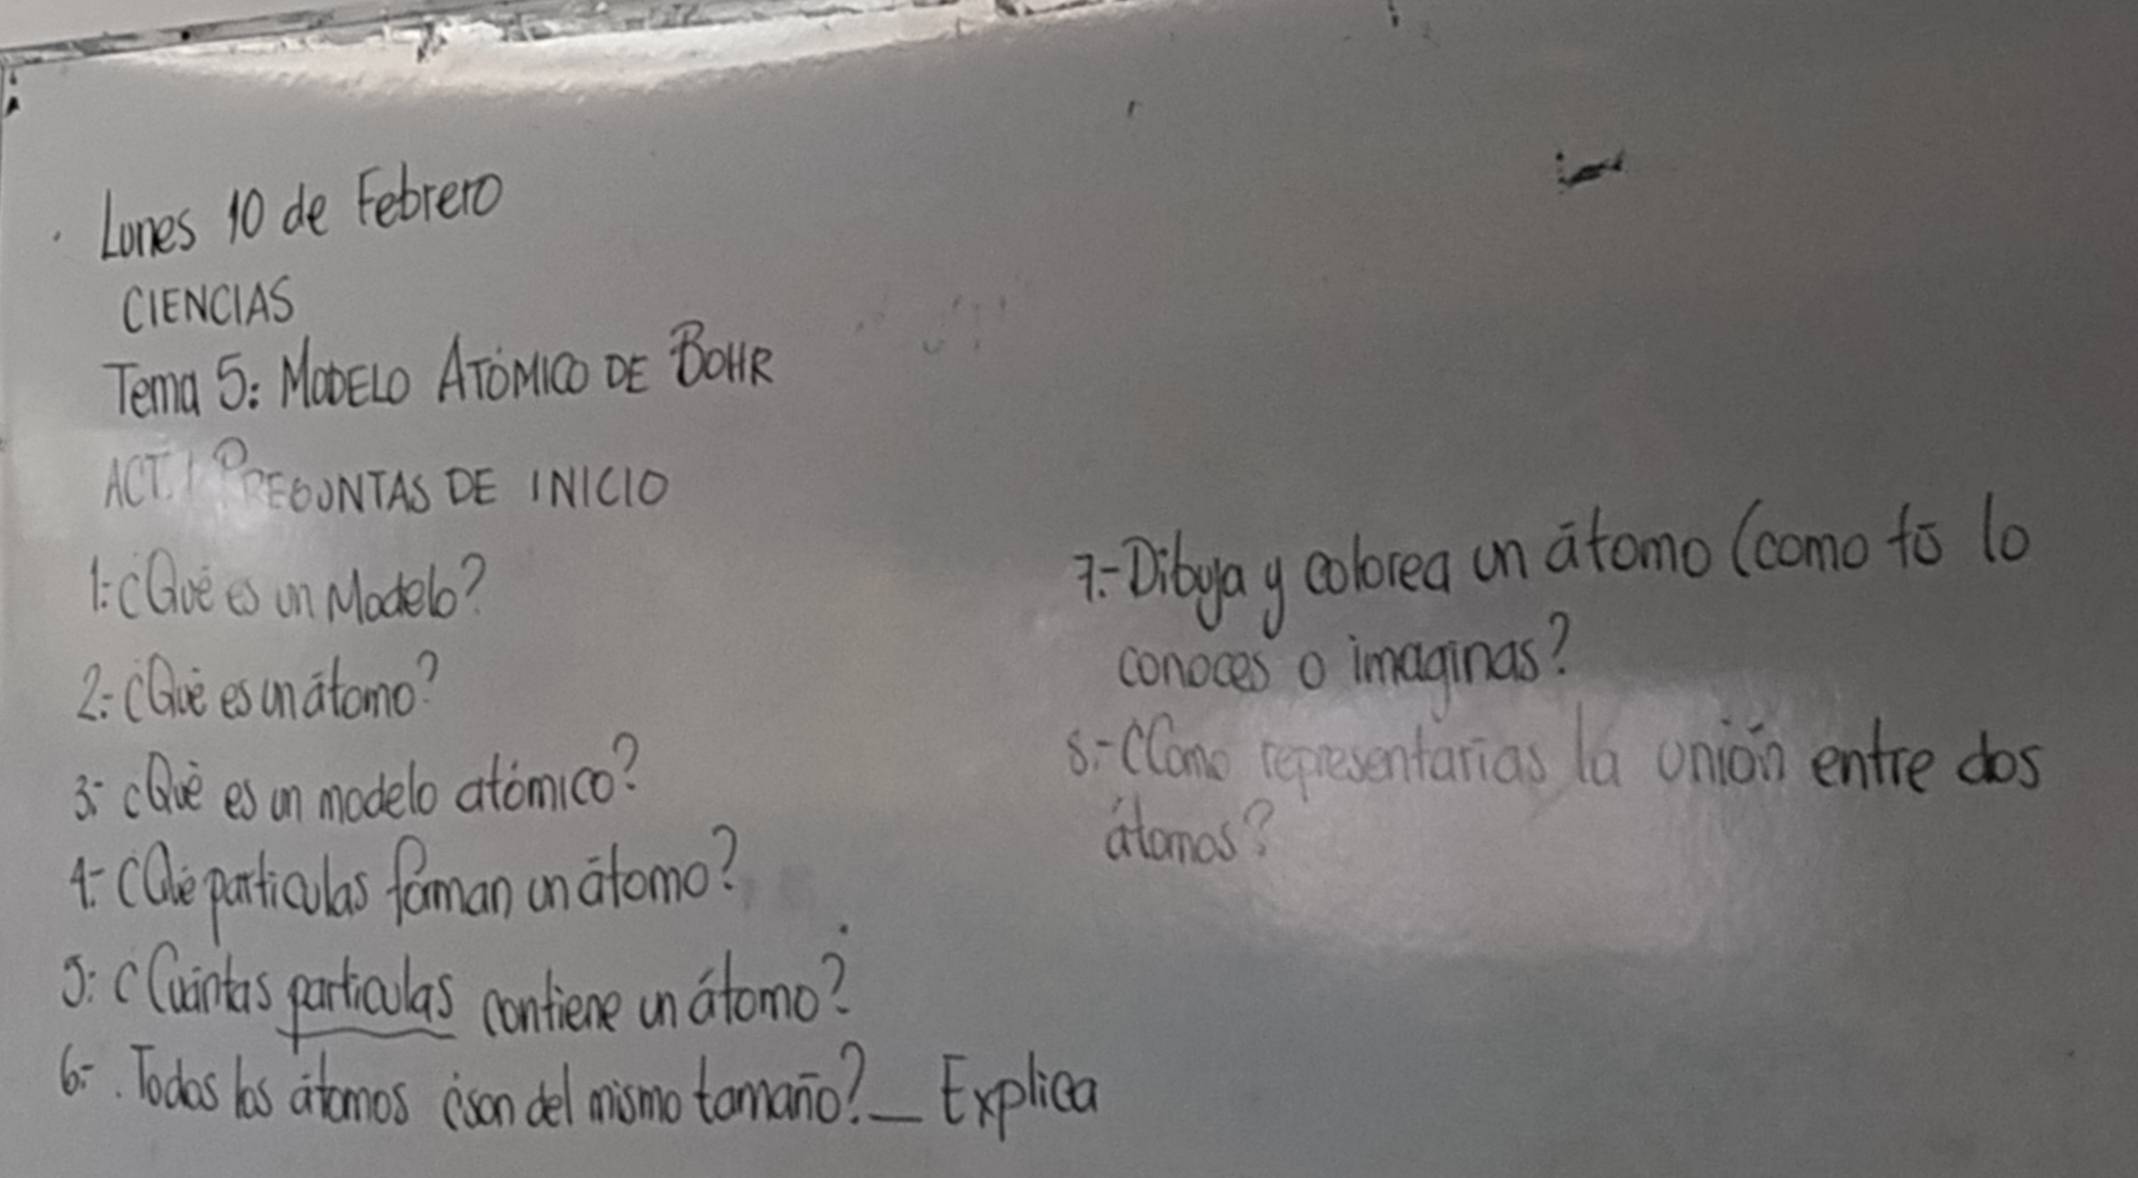 Lunes 10 de Febrero
CIENCIAS
Tema 5: MODELO ATÓMICO DE BOHR
ACT. 1 PREGUNTAS DE INICIO
1.- ¿Qué es un Modelo?
2.- ¿Qué es un átomo?
3.- ¿Qué es un modelo atómico?
4.- ¿Qué particulas forman un átomo?
5.- ¿Cuántas particulas contiene un átomo?
6.-. Todos los átomos ¿son del mismo tamaño?__ Explica
7.- Dibuja y colorea un átomo (como tú lo
conoces o imaginas?
8.- ¿Como representarías la unión entre dos
átomos?